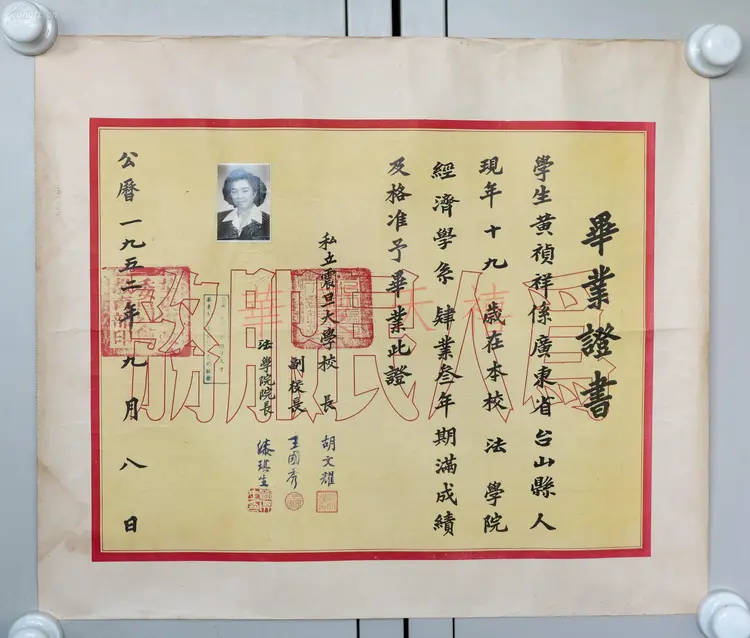 畢業證書
學生黃禎祥係廣東省台山縣人
現年十九歲在本校法學院
經濟學系肄業叁年期滿成績
及格准予畢業此證
私立震旦大學校長 胡文耀
副校長 王國秀
法學院院長 漆琪生
公曆一九五二年九月八日
為人民服務